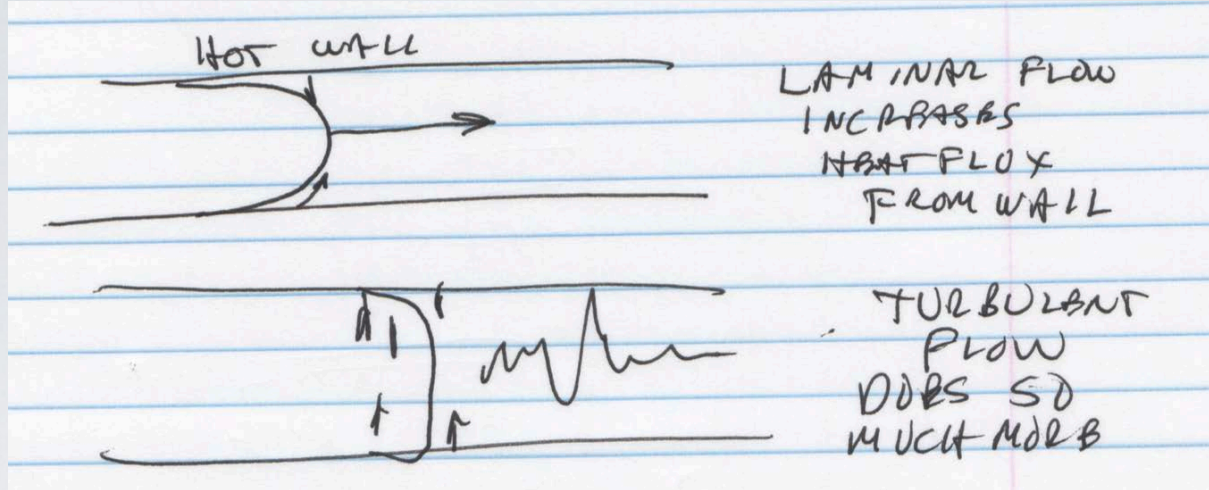 HOT WALL
LAMINAR FLOW
INCREASES
HEAT FLUX
FROM WALL
TURBULENT
FLOW
DOES SO
MUCH MORE